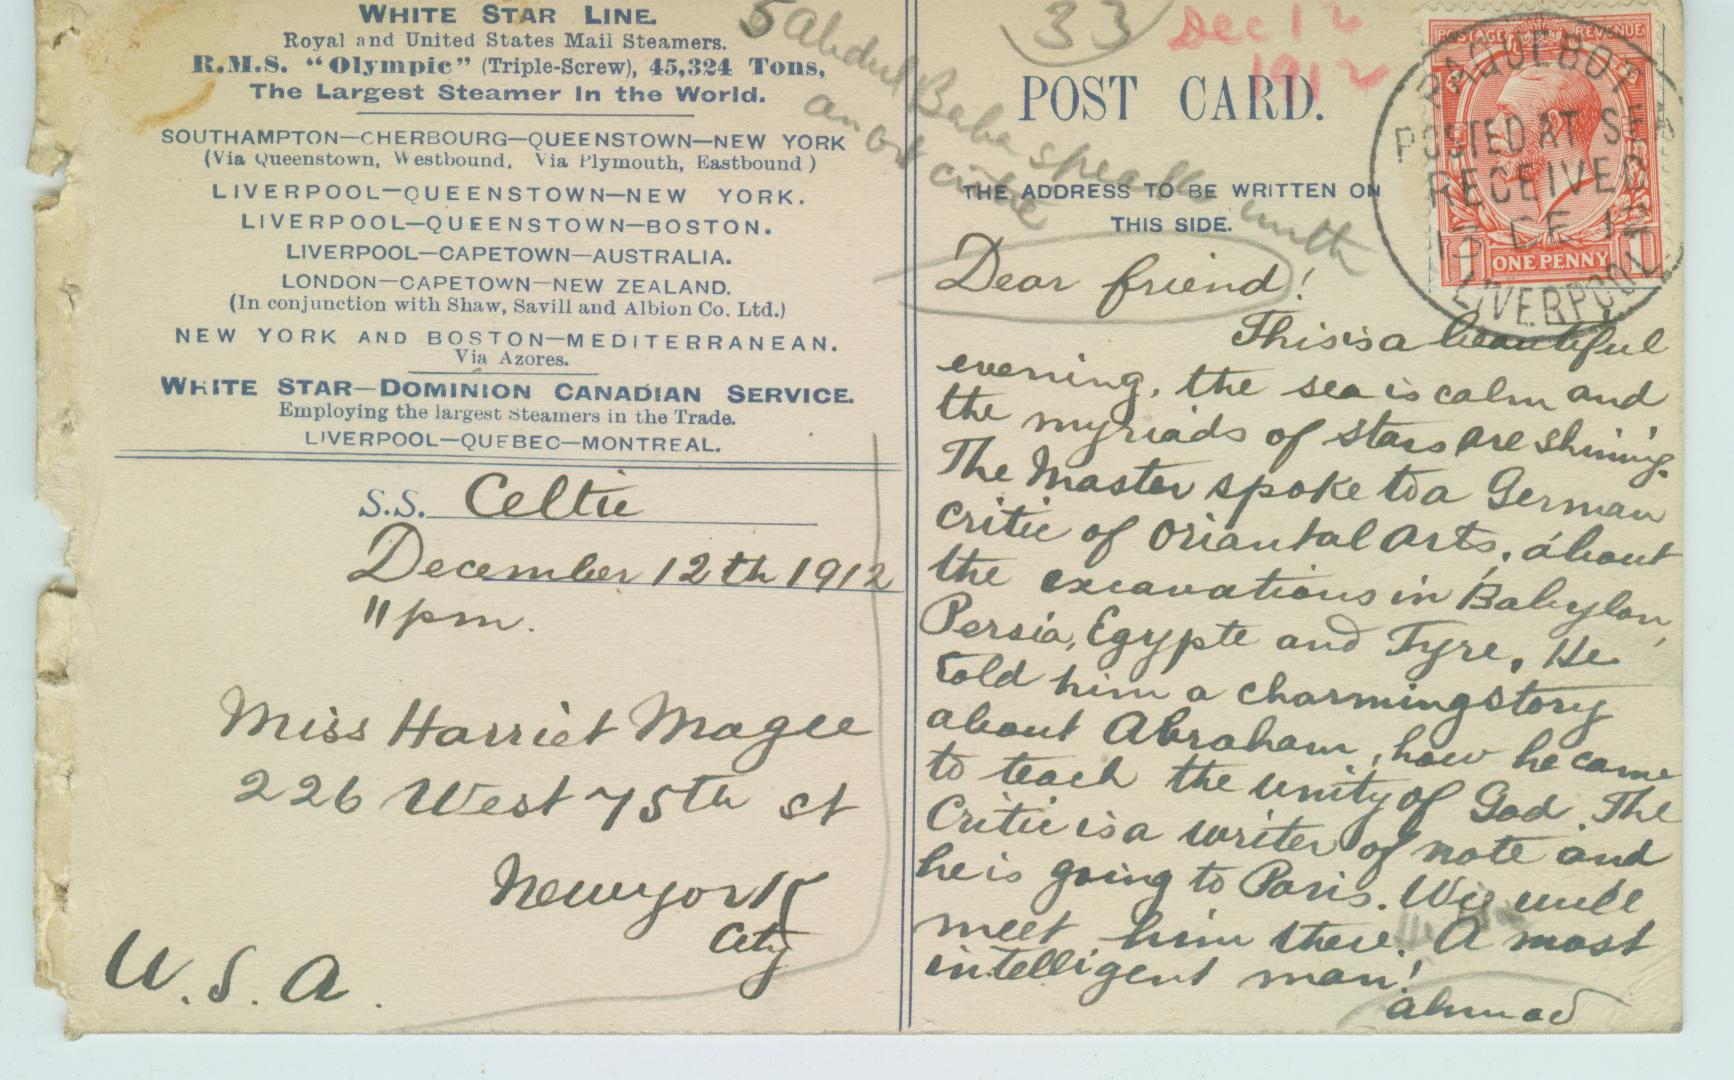 WHITE STAR LINE.
Royal and United States Mail Steamers.
R.M.S. "Olympic" (Triple-Screw), 45,324 Tons,
The Largest Steamer in the World.
SOUTHAMPTON—CHERBOURG—QUEENSTOWN—NEW YORK
(Via Queenstown, Westbound. Via Plymouth, Eastbound)
LIVERPOOL—QUEENSTOWN—NEW YORK.
LIVERPOOL—QUEENSTOWN—BOSTON.
LIVERPOOL—CAPETOWN—AUSTRALIA.
LONDON—CAPETOWN—NEW ZEALAND.
(In conjunction with Shaw, Savill and Albion Co. Ltd.)
NEW YORK AND BOSTON—MEDITERRANEAN.
Via Azores.
WHITE STAR—DOMINION CANADIAN SERVICE.
Employing the largest Steamers in the Trade.
LIVERPOOL—QUEBEC—MONTREAL.
S.S. Celtic
December 12th 1912
11 pm.
Miss Harriet Magee
226 West 75th st
New york
City
U.S.A.
5 Abdul Baha speaks with
an art critic
33
Dec 12
1912
POST CARD.
THE ADDRESS TO BE WRITTEN ON
THIS SIDE.
POSTAGE REVENUE
ONE PENNY
PAQUEBOT
POSTED AT SEA
RECEIVED
13 DE 12
LIVERPOOL
Dear friend!
This is a beautiful
evening, the sea is calm and
the myriads of stars are shining.
The Master spoke to a German
critic of Oriantal Arts, about
the excavations in Babylon,
Persia, Egypte and Tyre. He
told him a charming story
about Abraham, how he came
to teach the unity of God. The
Critic is a writer of note and
he is going to Paris. We will
meet him there. A most
intelligent man!
Ahmad